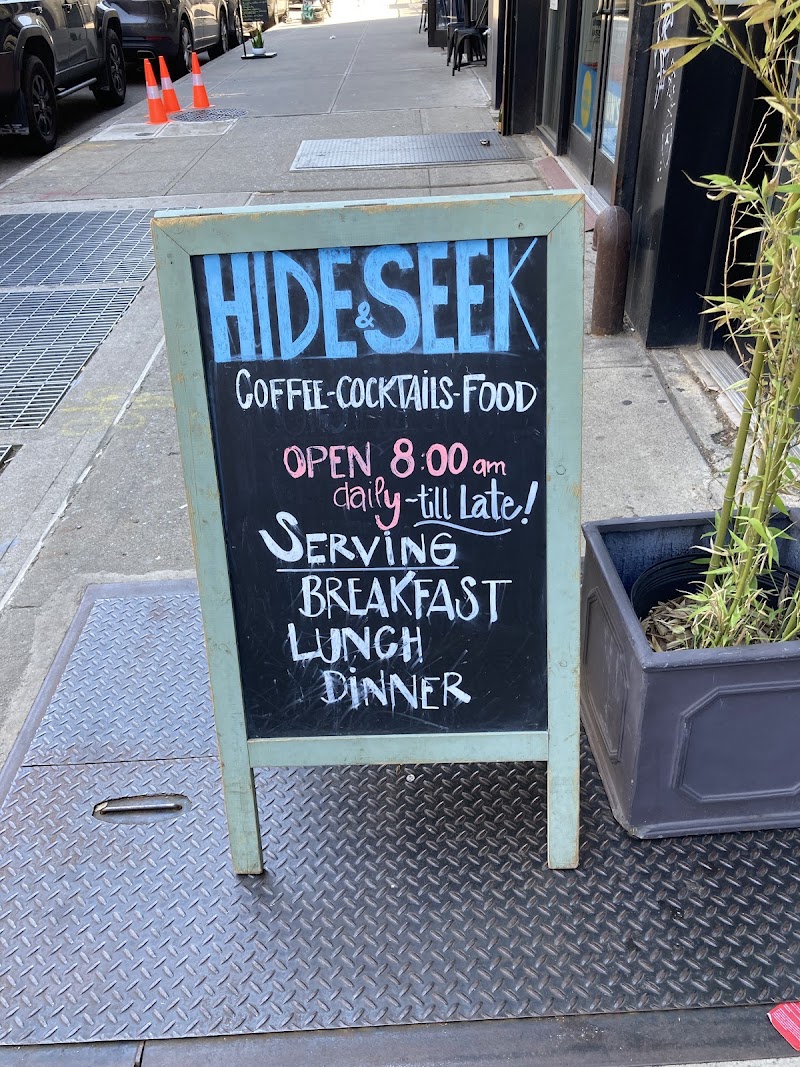 HIDE & SEEK
COFFEE-COCKTAiLS-FOOD
OPEN 8:00 am
daily ~till Late!
SERViNG
BREAKFAST
LUNCH
DiNNER